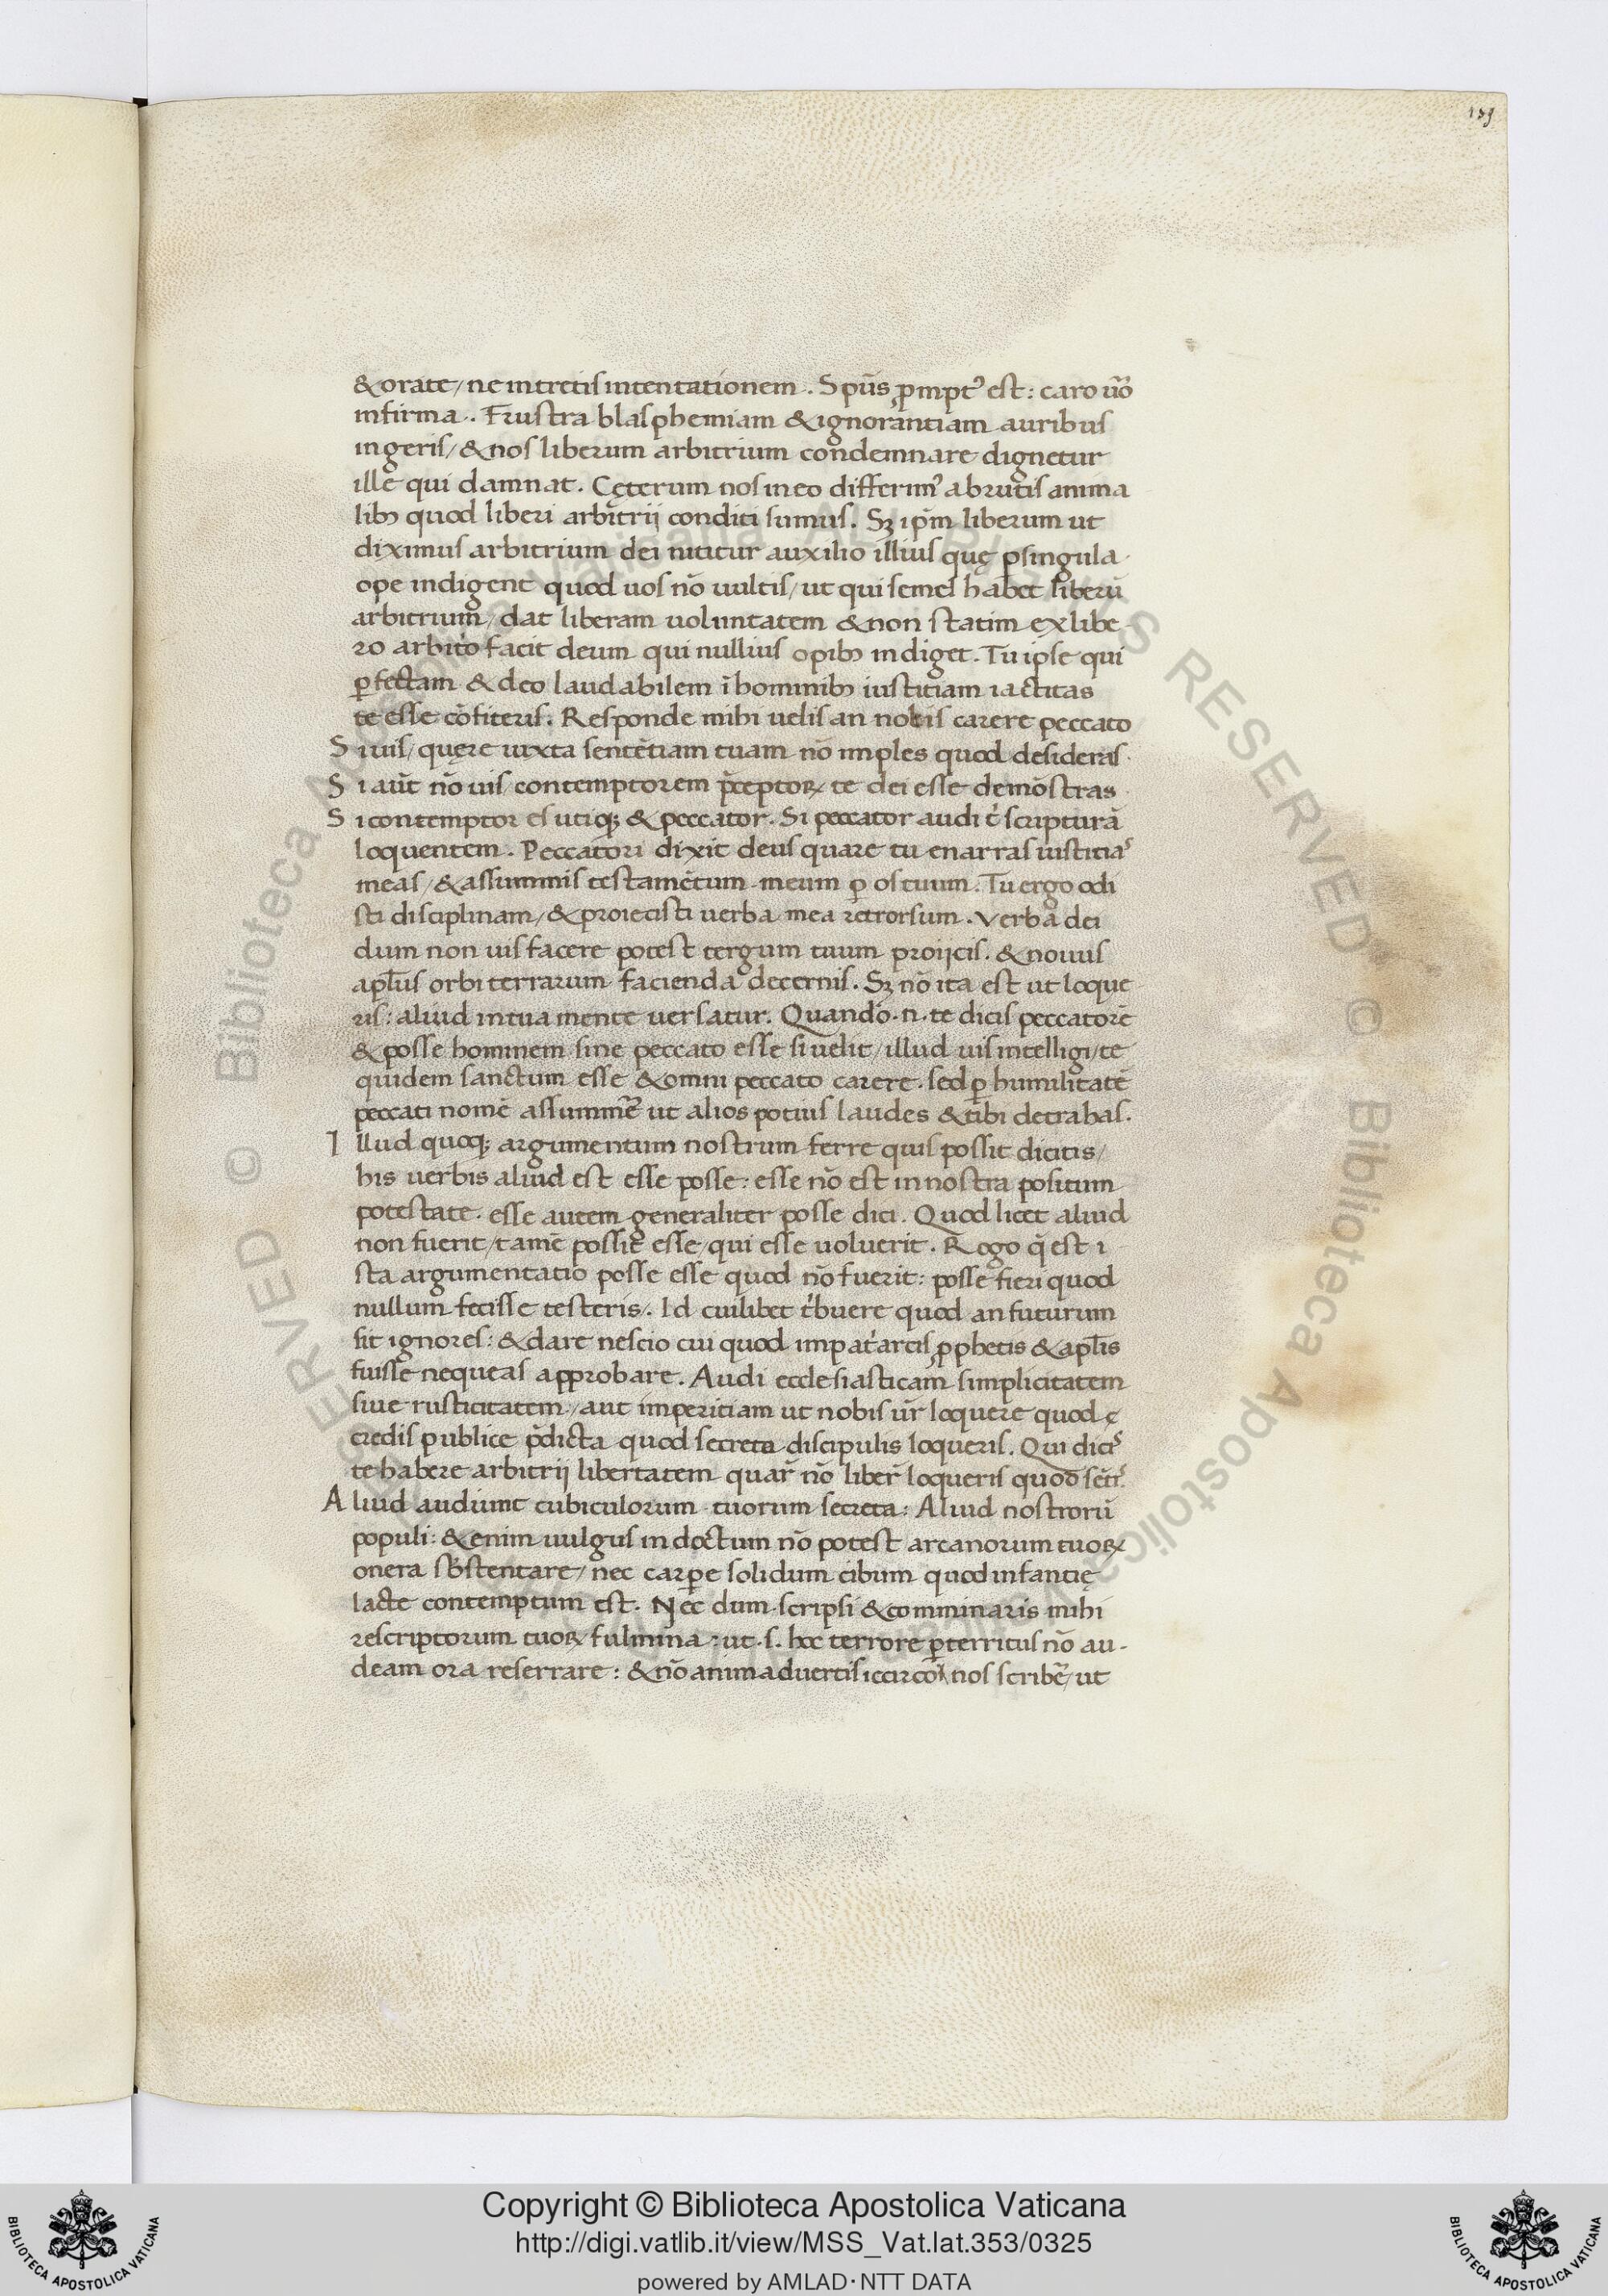 159
& orate / ne intretis intentationem . Spūs ꝓmptꝰ est : caro ūo
infirma . . Frustra blasphemiam & ignorantiam auribus
ingeris / & nos liberum arbitrium condemnare dignetur
ille qui damnat . Cęterum nos in eo differimꝰ abrutis anima
libꝫ quod liberi arbitrij conditi sumus . Sꝫ ip̄m liberum ut
diximus arbitrium dei nititur auxilio illius quę ꝑsingula
ope indigent quod uos nō uultis / ut qui semel habet liberū
arbitrium / dat liberam uoluntatem & non statim ex libe
ro arbit̓o facit deum qui nullius opibꝫ indiget . Tu ipse qui
ꝑfectam & deo laudabilem ī hominibꝫ iustitiam iactitas
te esse cōfiteris . Responde mihi uelis an nolis carere peccato
Si uis / quęre iuxta sentētiam tuam nō imples quod desideras .
Si aūt nō uis / contemptorem p̄ceptoꝝ te dei esse demōstras
Si contemptor es utiqꝫ & peccator . Si peccator audi t̓ scripturā
loquentem . Peccatori dixit deus quare tu enarras iustitias
meas / & assummis testamētum meum ꝑ os tuum . Tu ergo odi
sti disciplinam / & proiecisti uerba mea retrorsum . Verba dei
dum non uis facere potest tergum tuum proijcis . & nouus
apl̄us orbi terrarum facienda decernis . Sꝫ nō ita est ut loque
ris : aliud in tua mente uersatur . Quando . n . te dicis peccatorē
& posse hominem sine peccato esse si uelit / illud uis intelligi / te
quidem sanctum esse & omni peccato carere . sed ꝑ humilitatē
peccati nomē assumm̄e ut alios potius laudes & tibi detrahas .
Illud quoqꝫ argumentum nostrum ferre quis possit dicitis /
his uerbis aliud est esse posse : esse nō est in nostra positum
potestate . esse autem generaliter posse dici . Quod licet aliud
non fuerit / tamē possit esse / qui esse uoluerit . Rogo q̄ est i
sta argumentatio posse esse quod nō fuerit : posse fieri quod
nullum fecisse testeris . Id cuilibet t̓buere quod an futurum
sit ignores : & dare nescio cui quod in pat̓arcis ꝓphetis & apl̄is
fuisse nequeas approbare . Audi ecclesiasticam simplicitatem
siue rusticitatem / aut imperitiam ut nobis ūr loquere quod ę
credis publice p̄dicta quod secreta discipulis loqueris . Qui dicis
te habere arbitrij libertatem quar̄ nō liber̄ loqueris quod sēt̓ .
Aliud audiunt cubiculorum tuorum secreta : Aliud nostrorū
populi : & enim uulgus indoctum nō potest arcanorum tuoꝝ
onera sb̓stentare / nec carpe solidum cibum quod infantię
lacte contemptum est . Nec dum scripsi & comminaris mihi
rescriptorum tuoꝝ fulmina : ut . s . hoc terrore ꝑterritus nō au -
deam ora reserrare : & nō animaduertis iccirco nos scrib̄e / ut
Copyright © Biblioteca Apostolica Vaticana
http://digi.vatlib.it/view/MSS_Vat.lat.353/0325
powered by AMLAD·NTT DATA